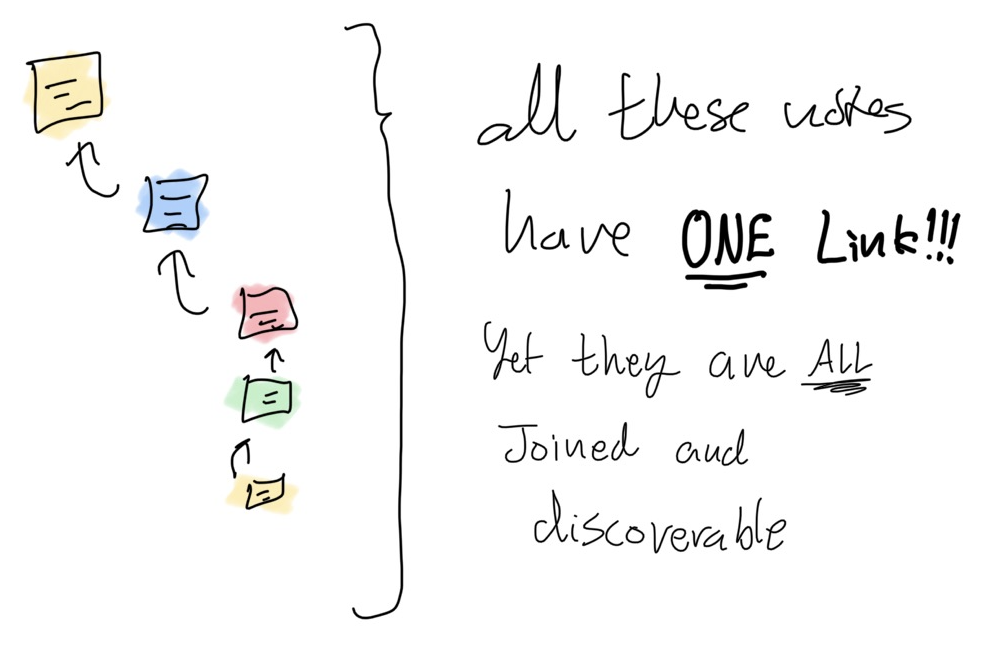 all these notes
have ONE Link!!!
Yet they are ALL
Joined and
discoverable